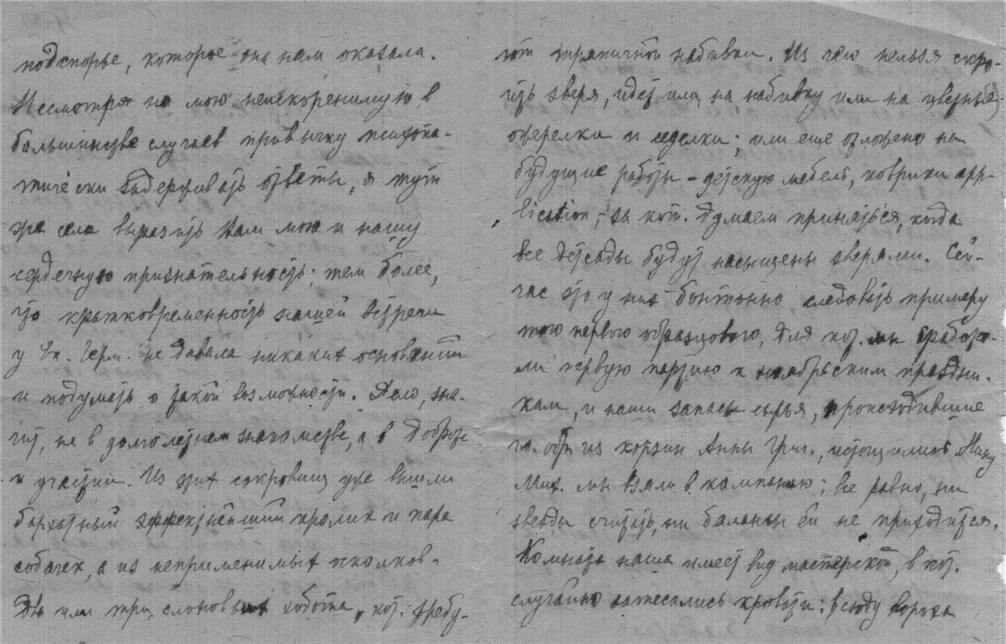 подспорье, которое она нам оказала.
Несмотря на мою неискоренимую, в
большинстве случаев привычку психопа-
тически задерживать ответы, я тут
же села выразить Вам мою и нашу
сердечную признательность; тем более,
что кратковременность нашей встречи
у Ек. Герм. не давала никаких оснований
и подумать о такой возможности. Дело, зна-
чит, не в долголетнем знакомстве, а в доброте
и участии. Из этих сокровищ уже вышли
бархатный эффектнейший кролик и пара
собачек, а из неприменимых осколков -
два или три слоновых хобота, кот. требу-
ют тряпичной набивки. Из чего нельзя скро-
ить зверя, идет или на набивку или на цветные
ожерелки и седелки; или еще отложено на
будущие работы - детскую мебель, коврики app-
lication, за кот. думаем приняться, когда
все детсады будут насыщены зверями. Сей-
час это у них бонтонно следовать примеру
того первого образцового, для кот. мы сработа-
ли первую партию к октябрьским праздни-
кам, и наши запасы сырья, происходившие
гл. обр. из корзин Анны Григ., истощились.
Мих. мы взяли в компанию; все равно, ни
звезды считать, ни балансы ей не приходится.
Комната наша имеет вид мастерской, в кот.
случайно затесались кровати: всюду вороха